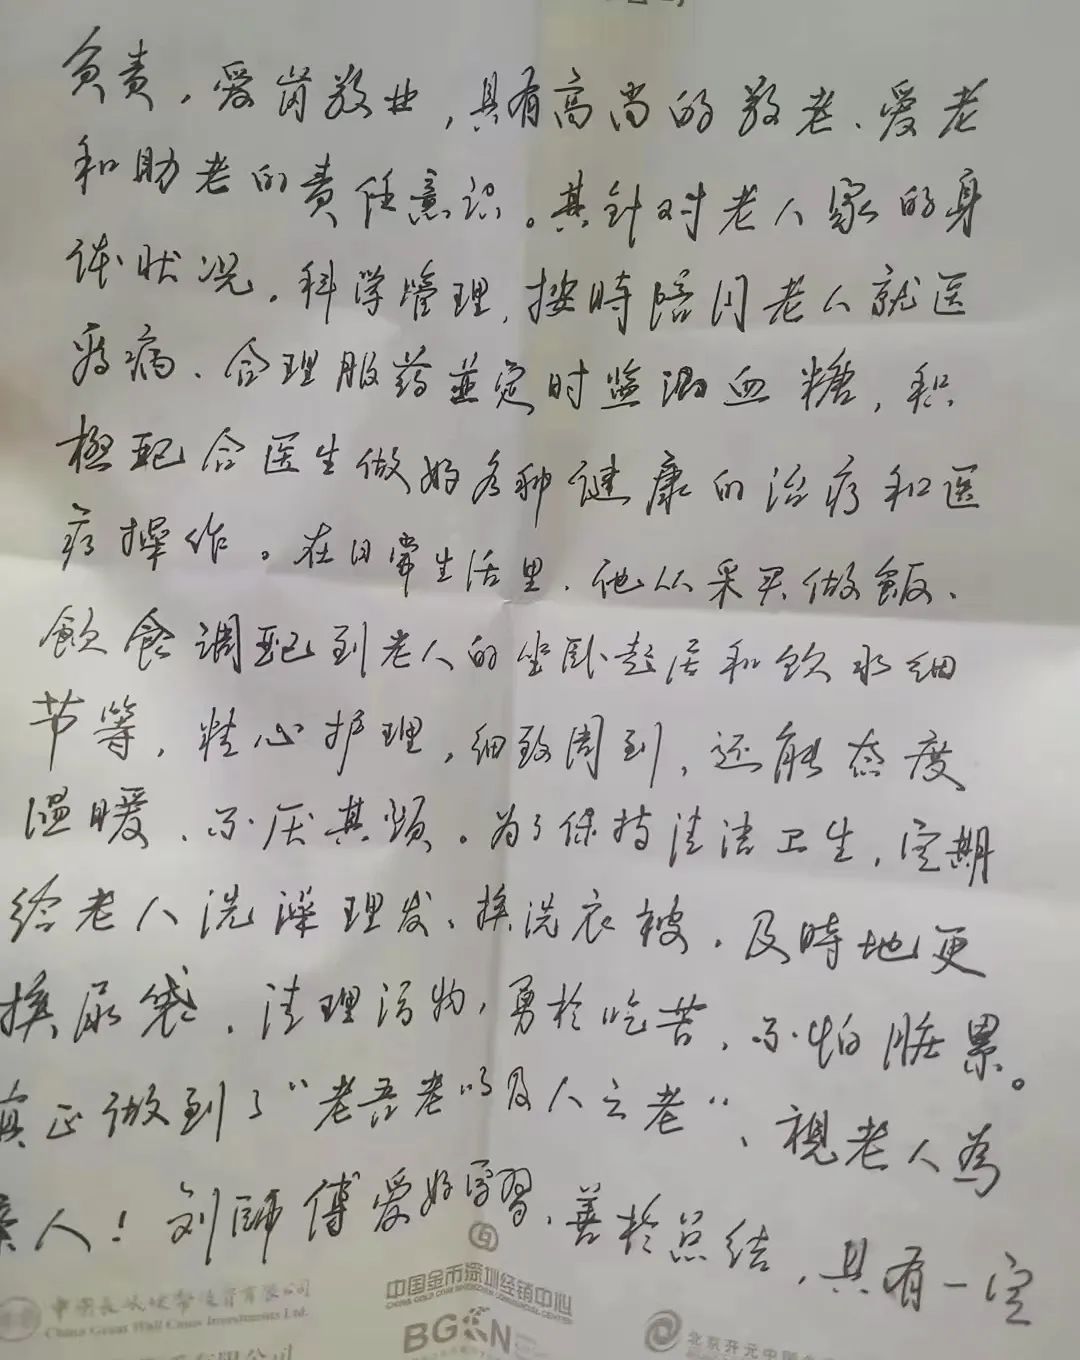 负责，爱岗敬业，具有高尚的敬老、爱老
和助老的责任意识。其针对老人家的身
体状况，科学管理，按時陪同老人就医
看病、合理服药並定时监测血糖，积
極配合医生做好各种健康的治疗和医
疗操作。在日常生活里，他从采买做飯、
飲食调配到老人的坐卧起居和飲水细
节等，精心护理，细致周到，还能态度
温暖、不厌其烦。为了保持清洁卫生，定期
给老人洗澡理发、换洗衣被，及時地更
换尿袋，清理污物，勇於吃苦，不怕脏累。
真正做到了“老吾老以及人之老”、視老人為
亲人！刘師傅爱好学習，善於总结，具有一定
中国長城硬幣投資有限公司
China Great Wall Coins Investments Ltd.
中国金币深圳经销中心
CHINA GOLD COIN SHENZHEN
BG
N
北京开元中国金
有限公司